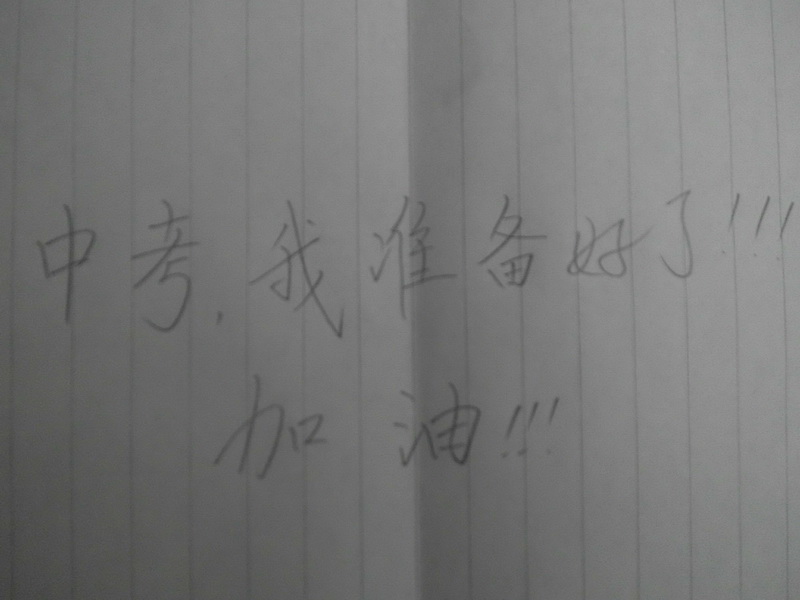 中考，我准备好了!!!
加油!!!